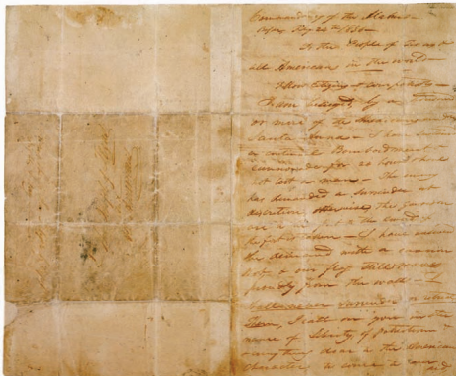 Commandancy of the Alamo—
Bejar, Fby 24th 1836—
To the People of Texas &
all Americans in the world—
Fellow citizens & compatriots—
I am besieged, by a thousand
or more of the Mexicans under
Santa Anna— I have sustained
a continual Bombardment &
cannonade for 24 hours & have
not lost a man— The enemy
has demanded a surrender at
discretion, otherwise, the garrison
are to be put to the sword, if
the fort is taken— I have answered
the demand with a cannon
shot, & our flag still waves
proudly from the walls— I
shall never surrender or retreat
Then, I call on you in the
name of Liberty, of patriotism &
everything dear to the American
character, to come to our aid,